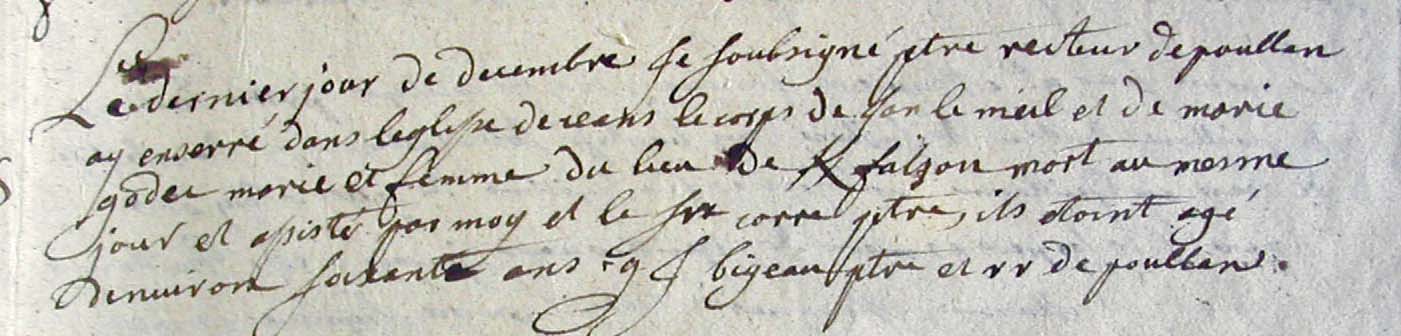 Le dernier jour de decembre Je soubsigné ptre recteur de poullan
ay enserré dans leglise de ceans le corps de jan le meil et de marie
godec marie et femme du lieu de falzou mort au mesme
jour et asisté par moy et le Sr corre ptre, ils etoint agé
denuiron soixante ans bigeau ptre et rr de poullan.